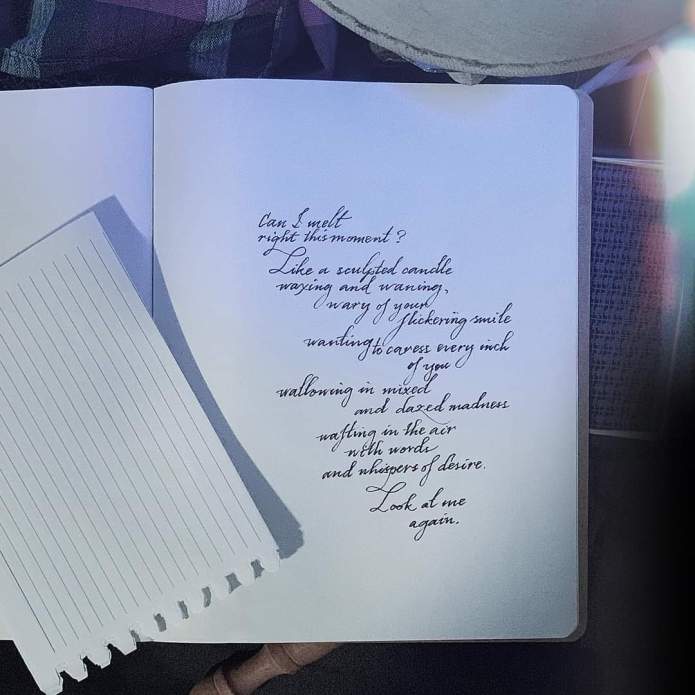 Can I melt
right this moment?
Like a sculpted candle
waxing and waning,
wary of your
flickering smile
wanting to caress every inch
of you
wallowing in mixed
and dazed madness
wafting in the air
with words
and whispers of desire.
Look at me
again.